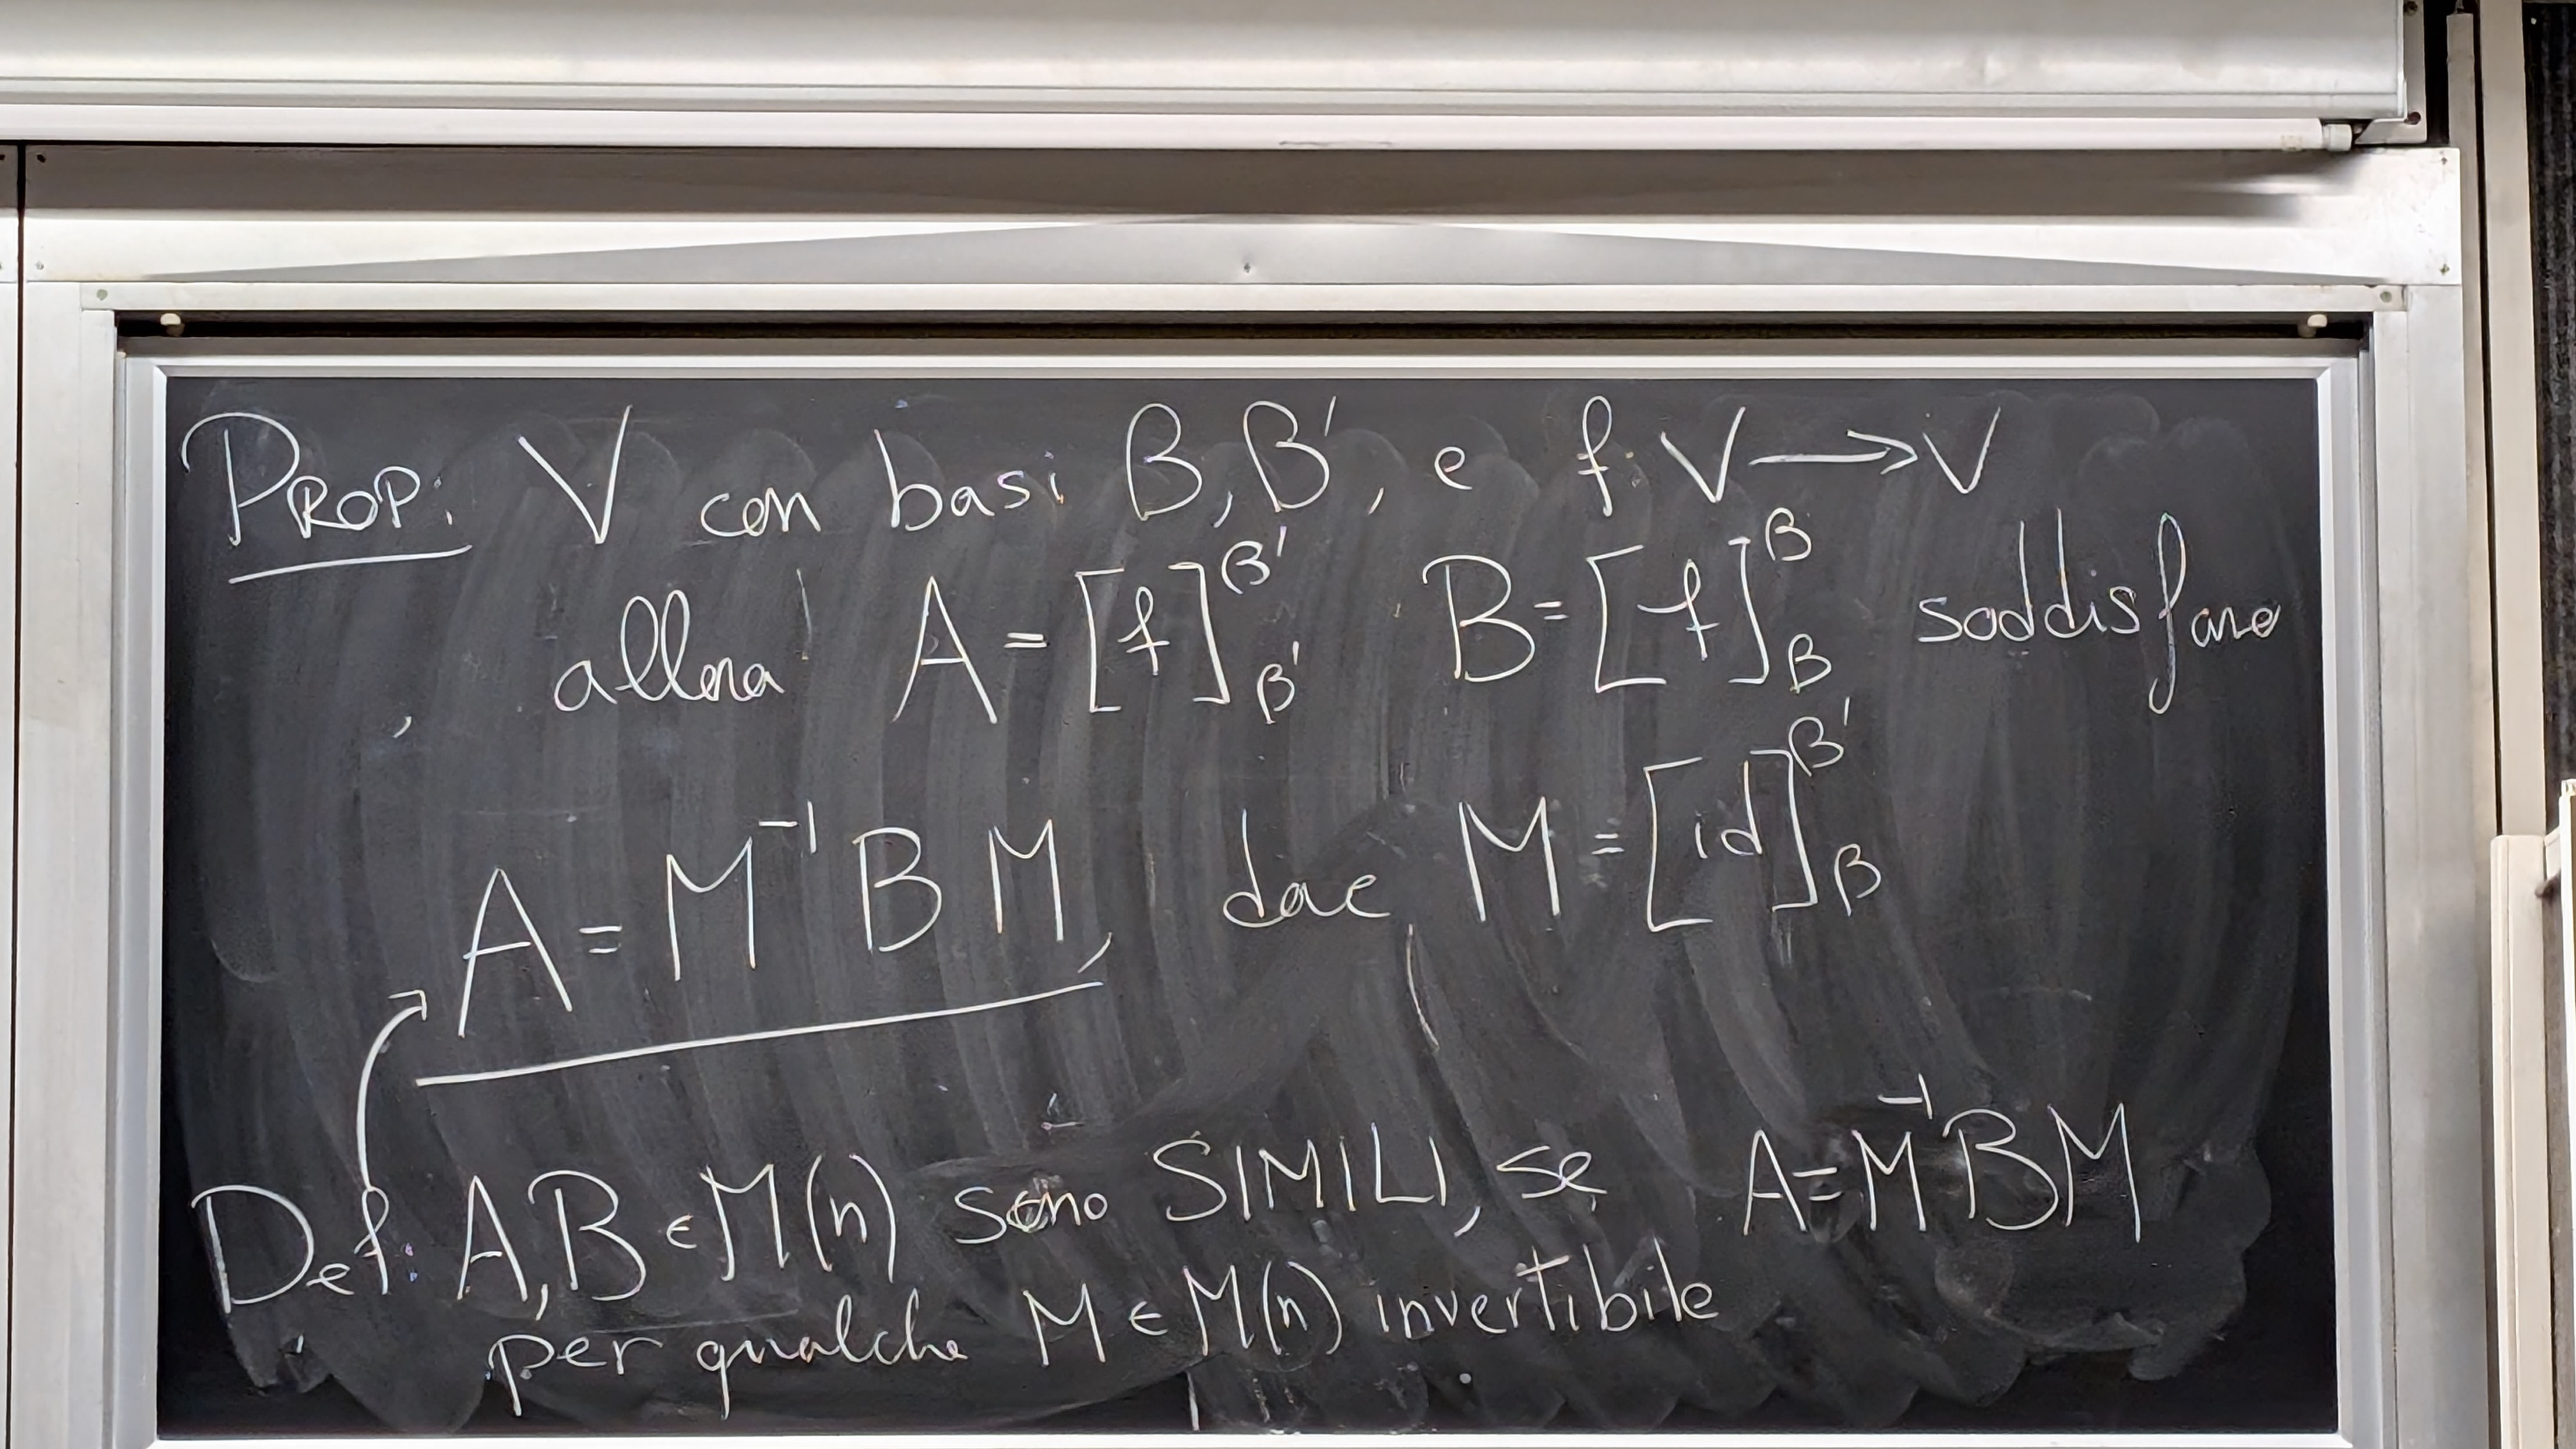 PROP: V con basi B, B', e f: V → V
allora A = [f]^{B'}_{B'} B = [f]^{B}_{B} soddisfano
A = M^{-1} B M, dove M = [id]^{B'}_{B}
Def: A, B ∈ M(n) sono SIMILI, se A = M^{-1} B M
per qualche M ∈ M(n) invertibile